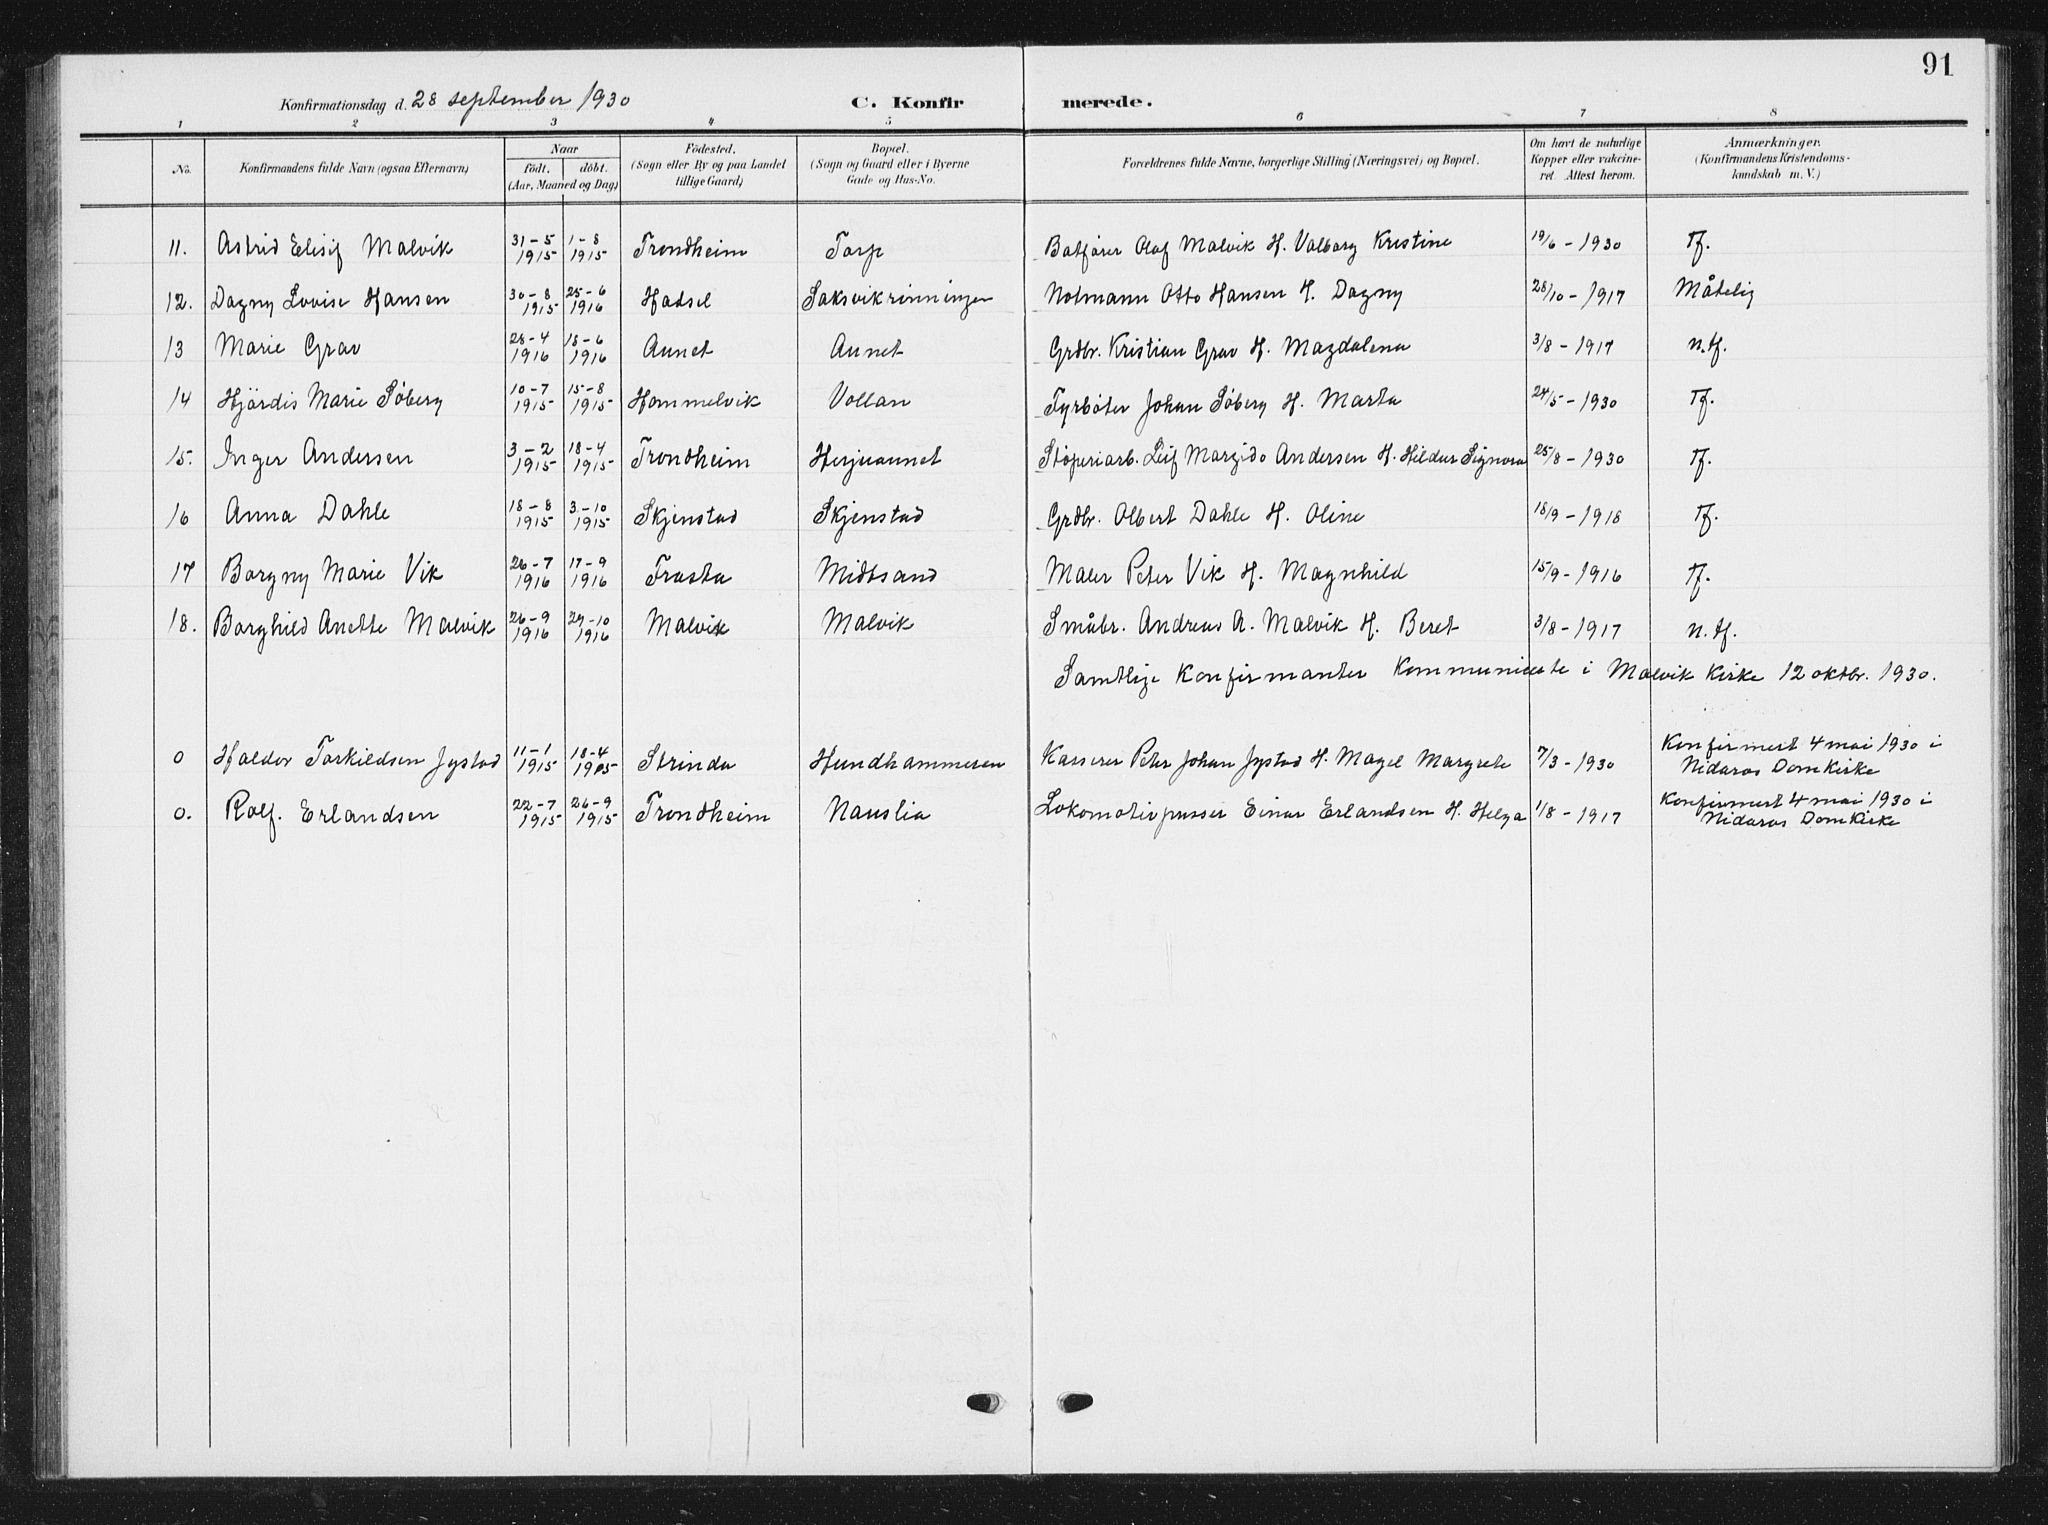 91
Konfirmationsdag d. 28 september 1930 C. Konfirmerede.
1 2 3 4 5 6 7 8
No. Konfirmandens fulde Navn (ogsaa Efternavn) Naar født, døbt. (Aar, Maaned og Dag) Fødested. (Sogn eller By og paa Landet tillige Gaard) Bopæl. (Sogn og Gaard eller i Byerne Gade og Hus-No. Forældrenes fulde Navne, borgerlige Stilling (Næringsvei) og Bopæl. Om havt de naturlige Kopper eller vakcineret. Attest herom. Anmærkninger. (Konfirmandens Kristendomskundskab m. V.)
11. Astrid Elisif Malvik 31-5 1915 1-8 1915 Trondheim Torp Båtfører Olaf Malvik H. Valborg Kristine 19/6 - 1930 Tf.
12. Dagny Lovise Hansen 30-8 1915 25-6 1916 Hadsel Saksvikrinningen Notmann Otto Hansen H. Dagny 28/10 - 1917 Måtelig
13 Marie Grav 28-4 1916 18-6 1916 Aunet Aunet Grdbr. Kristian Grav H. Magdalena 3/8 - 1917 n.tf.
14 Hjørdis Marie Søberg 10-7 1915 15-8 1915 Hommelvik Vollan Fyrbøter Johan Søberg H. Marta 24/5 - 1930 Tf.
15. Inger Andersen 3-2 1915 18-4 1915 Trondheim Herjuaunet Støperiarb. Leif Margido Andersen H. Hildur Signora 25/8 - 1930 Tf.
16 Anna Dahle 18-8 1915 3-10 1915 Skjenstad Skjenstad Grdbr. Albert Dahle H. Oline 18/9 - 1918 Tf.
17 Borgny Marie Vik 26-7 1916 17-9 1916 Frosta Midtsand Maler Peter Vik H. Magnhild 15/9 - 1916 Tf.
18. Borghild Anette Malvik 26-9 1916 29-10 1916 Malvik Malvik Småbr. Andreas A. Malvik H. Beret 3/8 - 1917 n.tf.
Samtlige Konfirmanter Kommuniserte i Malvik Kirke 12 oktbr. 1930.
0 Haldor Torkildsen Jystad 11-1 1915 18-4 1915 Strinda Hundhammeren Kasserer Peter Johan Jystad H. Magel Margrete 7/3 - 1930 Konfirmert 4 mai 1930 i
Nidaros Domkirke
0. Rolf. Erlandsen 22-7 1915 26-9 1915 Trondheim Nauslia Lokomotivpusser Einar Erlandsen H. Helga 1/8 - 1917 Konfirmert 4 mai 1930 i
Nidaros Domkirke